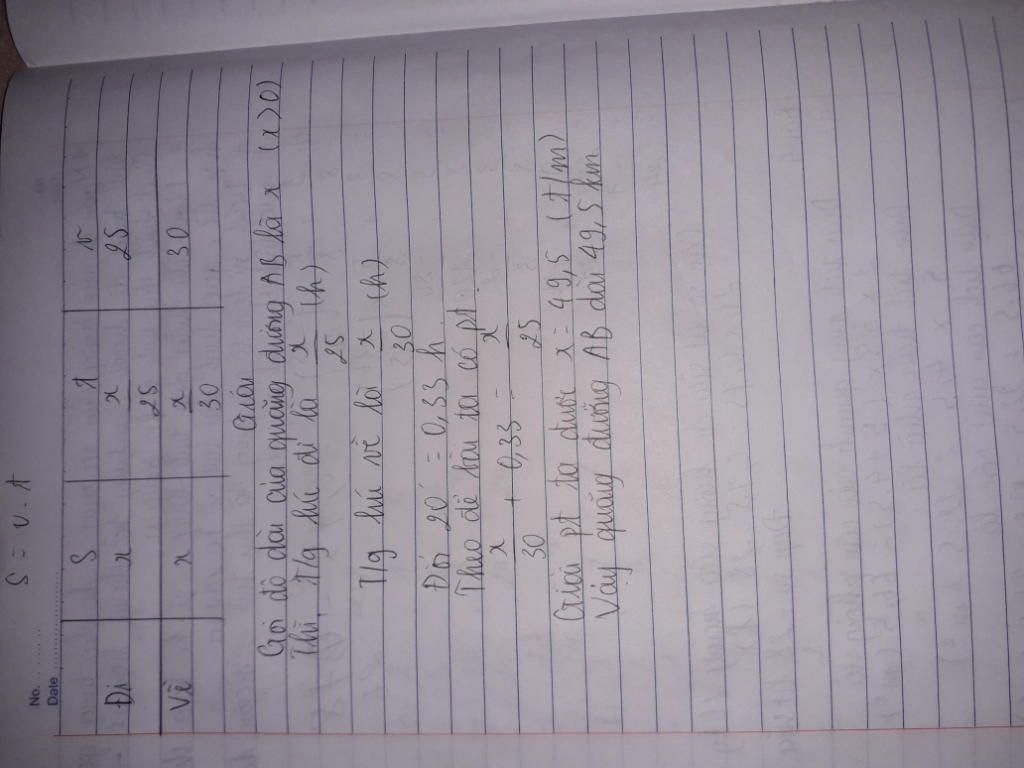 S = v . t
No.
Date
S t v
Đi x x/25 25
Về x x/30 30
Giải
Gọi độ dài của quãng đường AB là x (x > 0)
Thì t/g lúc đi là x/25 (h)
T/g lúc về là x/30 (h)
Đổi 20' = 0,33 h
Theo đề bài ta có pt:
x/30 + 0,33 = x/25
Giải pt ta được x = 49,5 (t/m)
Vậy quãng đường AB dài 49,5 km